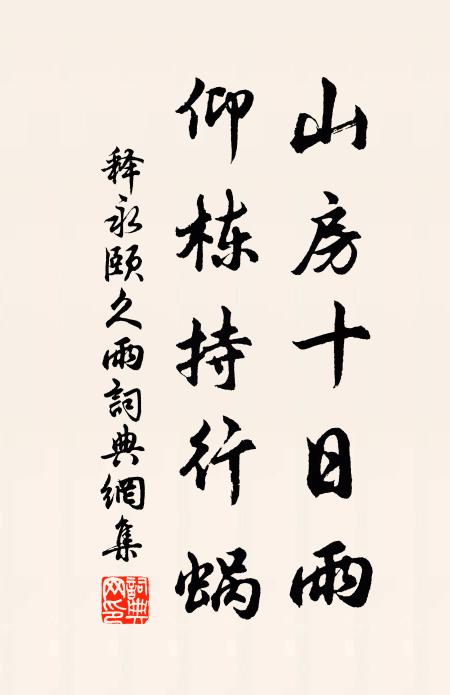 山房十日雨
仰栋持行蜗
释永颐久雨詞典網集
詞典网印